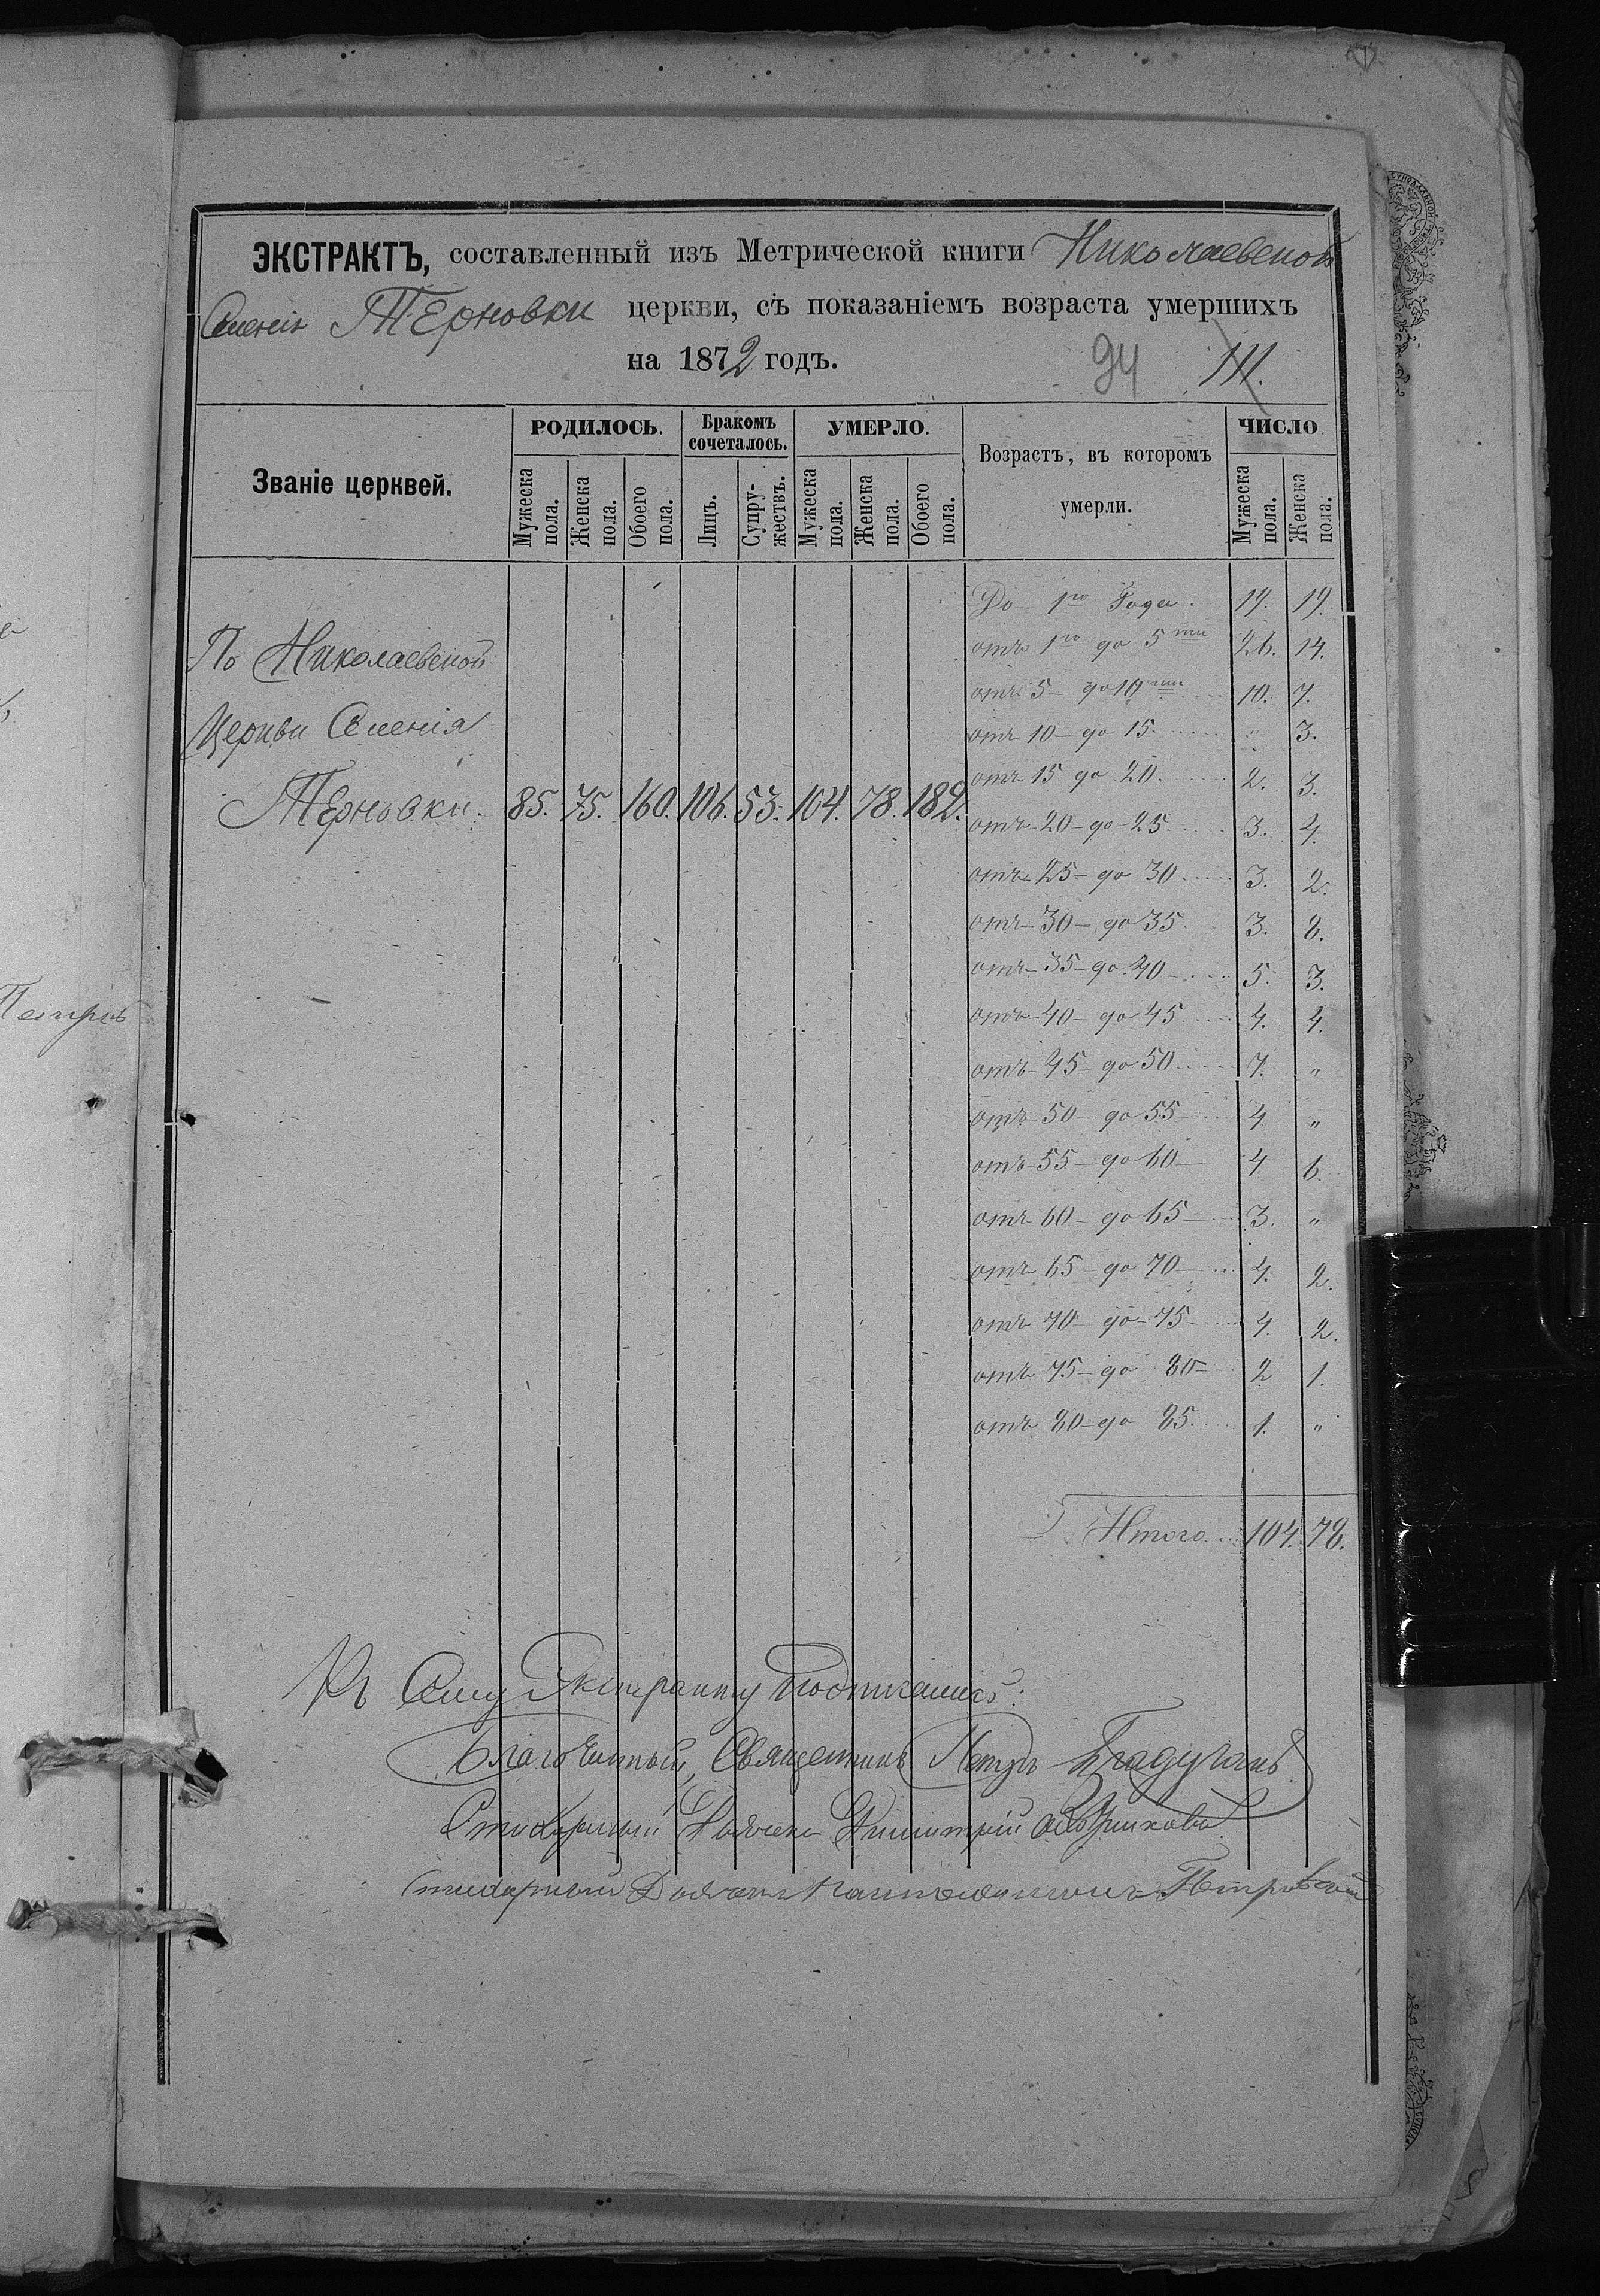 ЭКСТРАКТЪ, составленный изъ Метрической книги Николаевской
Селенія Терновки церкви, съ показаніемъ возраста умершихъ
на 1872 годъ.
94 111.
Званіе церквей.
РОДИЛОСЬ.
Бракомъ сочеталось.
УМЕРЛО.
Возрастъ, въ которомъ умерли.
ЧИСЛО
Мужеска пола.
Женска пола.
Обоего пола.
Лицъ.
Супружествъ.
Мужеска пола.
Женска пола.
Обоего пола.
Мужеска пола.
Женска пола.
По Николаевской
Церкви Селенія
Терновки. 85. 75. 160. 106. 53. 104. 78. 182.
До 1го Года. 19. 19.
отъ 1го до 5ти 26. 14.
отъ 5 до 10ти 10. 7.
отъ 10 до 15. " 3.
отъ 15 до 20. 2. 3.
отъ 20 до 25. 3. 4.
отъ 25 до 30 3. 2.
отъ 30 до 35. 3. 8.
отъ 35 до 40 5. 3.
отъ 40 до 45 4. 4.
отъ 45 до 50 7. "
отъ 50 до 55 4 "
отъ 55 до 60 4 6
отъ 60 до 65 3. "
отъ 65 до 70 4. 2.
отъ 70 до 75 4. 2.
отъ 75 до 80 2 1.
отъ 80 до 85. 1. "
Итого 104. 78.
Къ Сему Экстракту Подписались:
Благочинный, Священникъ Петръ
Стихарный Димитрій
Стихарный Петровскій
Петръ